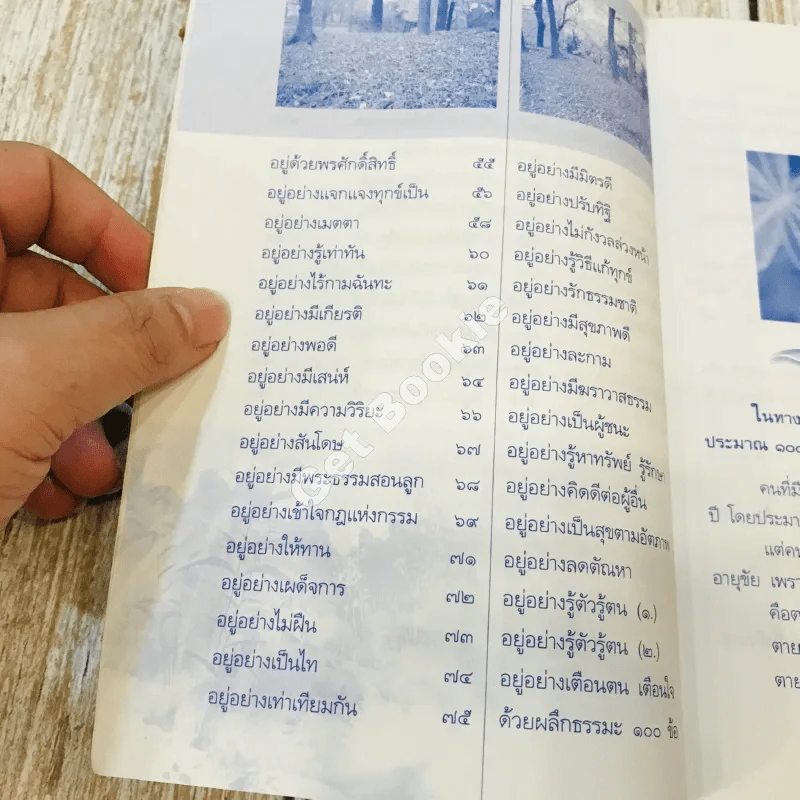 อยู่ด้วยพรศักดิ์สิทธิ์ ๕๕
อยู่อย่างแจกแจงทุกข์เป็น ๕๖
อยู่อย่างเมตตา ๕๘
อยู่อย่างรู้เท่าทัน ๖๐
อยู่อย่างไร้กามฉันทะ ๖๑
อยู่อย่างมีเกียรติ ๖๒
อยู่อย่างพอดี ๖๓
อยู่อย่างมีเสน่ห์ ๖๔
อยู่อย่างมีความวิริยะ ๖๖
อยู่อย่างสันโดษ ๖๗
อยู่อย่างมีพระธรรมสอนลูก ๖๘
อยู่อย่างเข้าใจกฎแห่งกรรม ๖๙
อยู่อย่างให้ทาน ๗๑
อยู่อย่างเผด็จการ ๗๒
อยู่อย่างไม่ฝืน ๗๓
อยู่อย่างเป็นไท ๗๔
อยู่อย่างเท่าเทียมกัน ๗๕
อยู่อย่างมีมิตรดี
อยู่อย่างปรับทิฐิ
อยู่อย่างไม่กังวลล่วงหน้า
อยู่อย่างรู้วิธีแก้ทุกข์
อยู่อย่างรักธรรมชาติ
อยู่อย่างมีสุขภาพดี
อยู่อย่างละกาม
อยู่อย่างมีฆราวาสธรรม
อยู่อย่างเป็นผู้ชนะ
อยู่อย่างรู้หาทรัพย์ รู้รักษา
อยู่อย่างคิดดีต่อผู้อื่น
อยู่อย่างเป็นสุขตามอัตภาพ
อยู่อย่างลดตัณหา
อยู่อย่างรู้ตัวรู้ตน (๑.)
อยู่อย่างรู้ตัวรู้ตน (๒.)
อยู่อย่างเตือนตน เตือนใจ
ด้วยผลึกธรรมะ ๑๐๐ ข้อ
ในทาง
ประมาณ ๑๐๐
คนที่มี
ปี โดยประมา
แต่คน
อายุขัย เพรา
คือต
ตาย
ตาย
Get Bookie